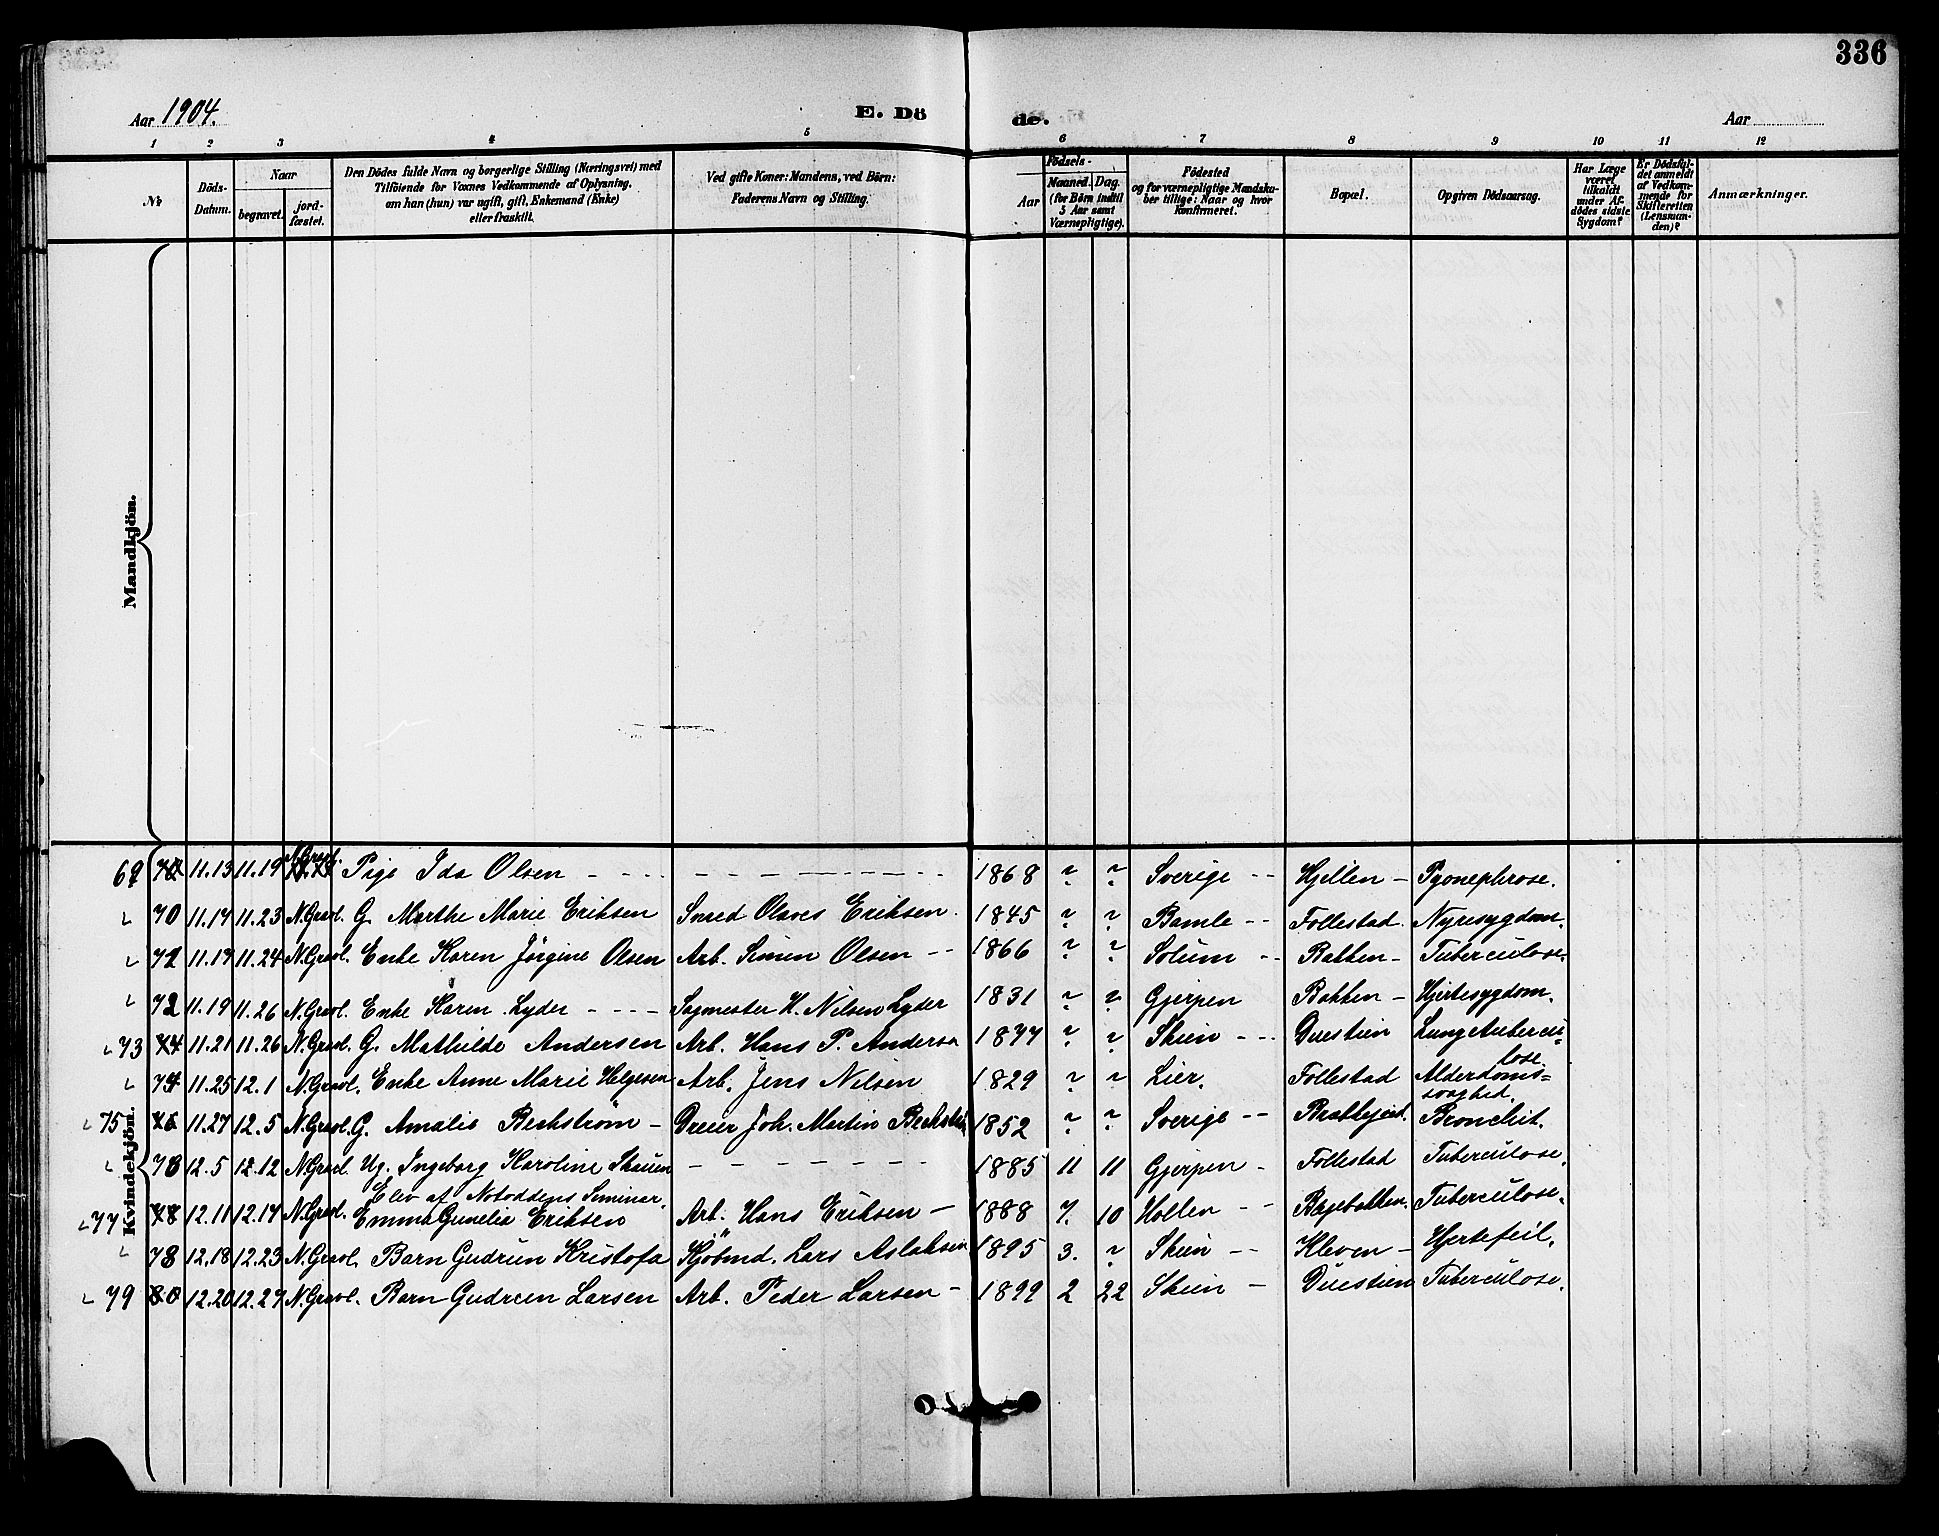 336
Aar 1904. E. Dö de. Aar
1 2 3 4 5 6 7 8 9 10 11 12
№
Döds-
Datum.
Naar
begravet.
jord-
fæstet.
Den Dödes fulde Navn og borgerlige Stilling (Næringsvei) med
Tilföiende for Voxnes Vedkommende af Oplysning,
om han (hun) var ugift, gift, Enkemand (Enke)
eller fraskilt.
Ved gifte Koner: Mandens, ved Börn:
Faderens Navn og Stilling.
Födsels-
Aar
Maaned. Dag.
(for Börn indtil
5 Aar samt
Værnepligtige).
Födested
og for værnepligtige Mandska-
ber tillige: Naar og hvor
Konfirmeret.
Bopæl.
Opgiven Dödsaarsag.
Har Læge
været
tilkaldt
under Af-
dödes sidste
Sygdom?
Er Dödsfal-
det anmeldt
af Vedkom-
mende for
Skifteretten
(Lensman-
den)?
Anmærkninger.
Mandkjön.
Kvindekjön.
69 11.13 11.19 N.Gravl. Pige Ida Olsen - - - - - - 1868 ? ? Sverige - - Hjellen - Pyonephrose.
70 11.17 11.23 N.Gravl. G. Marthe Marie Eriksen Smed Olaves Eriksen. 1845 ? ? Bamle - - Follestad. Nyresygdom.
71 11.17 11.24 N.Gravl. Enke Karen Jörgine Olsen Arb. Simen Olsen - - 1866 ? ? Solum - - Bakken - Tuberculose.
72 11.19 11.26 N.Gravl. Enke Karen Lyder - - - - Sagmester H. Nilsen Lyder 1831 ? ? Gjerpen Bakken - Hjertesygdom.
73 11.21 11.26 N.Gravl. G. Mathilde Andersen Arb. Hans P. Andersen 1877 ? ? Skien - - - Duestien Lungetubercu-
lose
74 11.25 12.1 N.Gravl. Enke Anne Marie Helgesen Arb. Jens Nilsen 1829 ? ? Lier. Follestad Alderdoms=
svaghed.
75 11.27 12.5 N.Gravl. G. Amalie Beckström - Dreier Joh. Martin 1852 ? ? Sverige - - Bronchit.
12.5 12.12 N.Gravl. Ug. Ingeborg Karoline Skauen - - - - - - - 1885 11 11 Gjerpen - Follestad Tuberculose.
Elev af Notoddens Seminar.
77 12.11 12.17 N.Gravl. Emma Gunelie Eriksen Arb. Hans Eriksen - 1888 7. 10 Hollen - - Bagebakken. Tuberculose.
78 12.18 12.23 N.Gravl. Barn Gudrun Kristofa Kjöbmd. Lars Aslaksen 1895 3. ? Skien - - Kleven - Hjertefeil.
79 12.20 12.27 N.Gravl. Barn Gudrun Larsen Arb. Peder Larsen - 1899 2 22 Skien - Duestien Tuberculose.